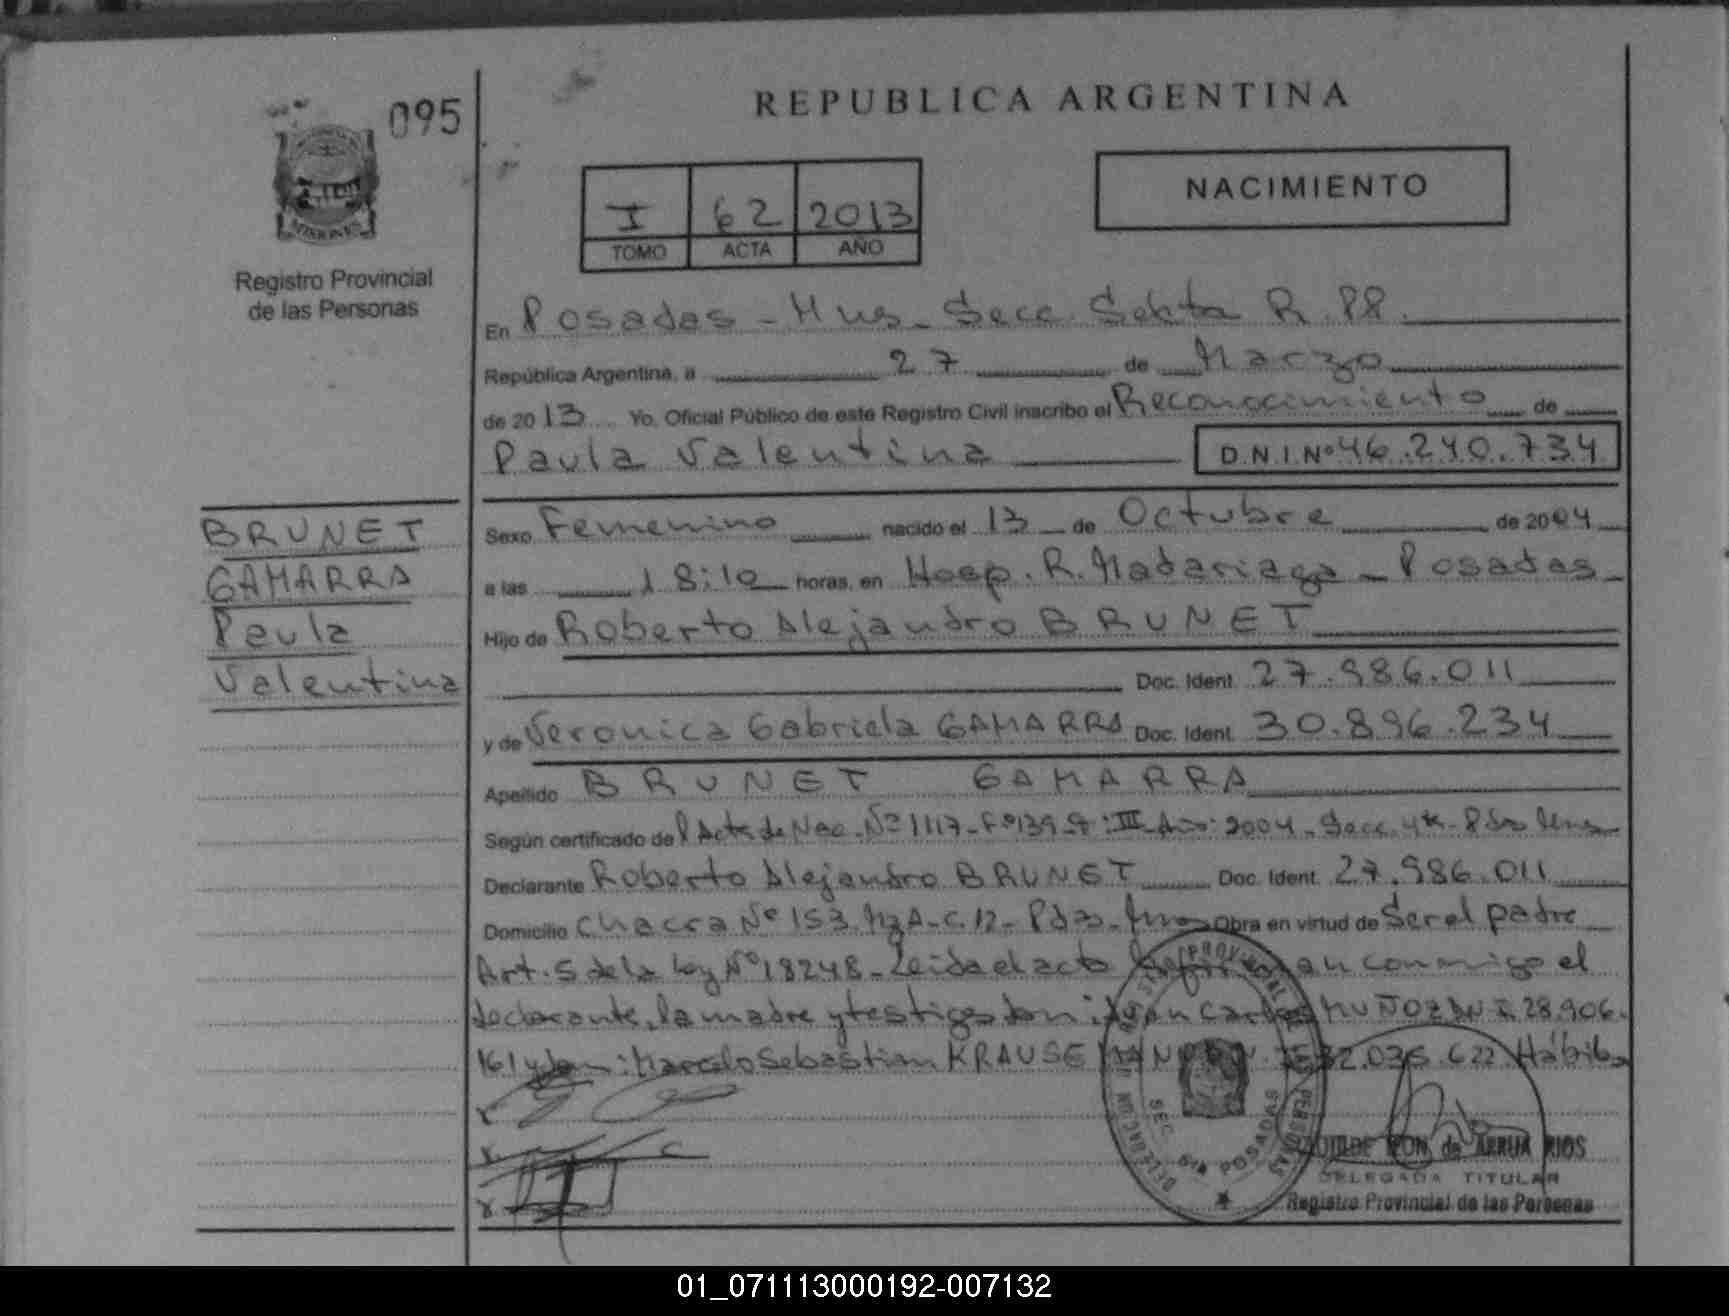 REPUBLICA ARGENTINA
095
MISIONES
Registro Provincial
de las Personas
I 62 2013
TOMO ACTA AÑO
NACIMIENTO
En Posadas - Mns - Secc. Sekta R. PP.
República Argentina, a 27 de Marzo
de 2013 Yo, Oficial Público de este Registro Civil inscribo el Reconocimiento de
Paula Valentina D.N.I.Nº 46.240.734
BRUNET
GAMARRA
Paula
Valentina
Sexo Femenino nacido el 13 de Octubre de 2004
a las 18:10 horas, en Hosp. R. Madariaga - Posadas
Hijo de Roberto Alejandro BRUNET
Doc. Ident. 27.986.011
y de Veronica Gabriela GAMARRA Doc. Ident. 30.896.234
Apellido BRUNET GAMARRA
Según certificado de Acta de Nac. Nº 1117 - Fº 139 - Tº: III - Año: 2004 - Secc. 4ta - Pdas Mns
Declarante Roberto Alejandro BRUNET Doc. Ident. 27.986.011
Domicilio Chacra Nº 153 Mz A - C. 12 - Pdas - Mns Obra en virtud de Ser el padre
Art. 5 de la Ley Nº 18248 - Leida el acta firman conmigo el
declarante, la madre y testigos Don: Juan Carlos MUÑOZ DNI. 28.906.
161 y Don: Marcelo Sebastian KRAUSE 32.035.622 Hábiles
DELEGACION SEC. 6ta POSADAS
REGISTRO PROVINCIAL DE LAS PERSONAS
de ARRUA RIOS
DELEGADA TITULAR
Registro Provincial de las Personas
01_071113000192-007132